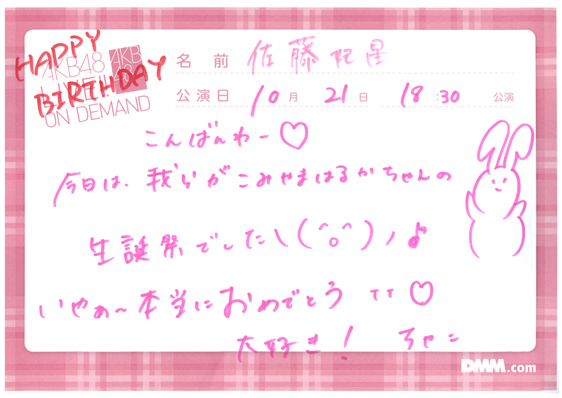 HAPPY
BIRTHDAY
AKB48
ON DEMAND
名前 佐藤妃星
公演日 10月21日 18:30公演
こんばんわー♡
今日は、我らがこみやまはるかちゃんの
生誕祭でした\(^o^)ノ♪
いやぁ〜本当におめでとう TT♡
大好き! ちゃこ
DMM.com